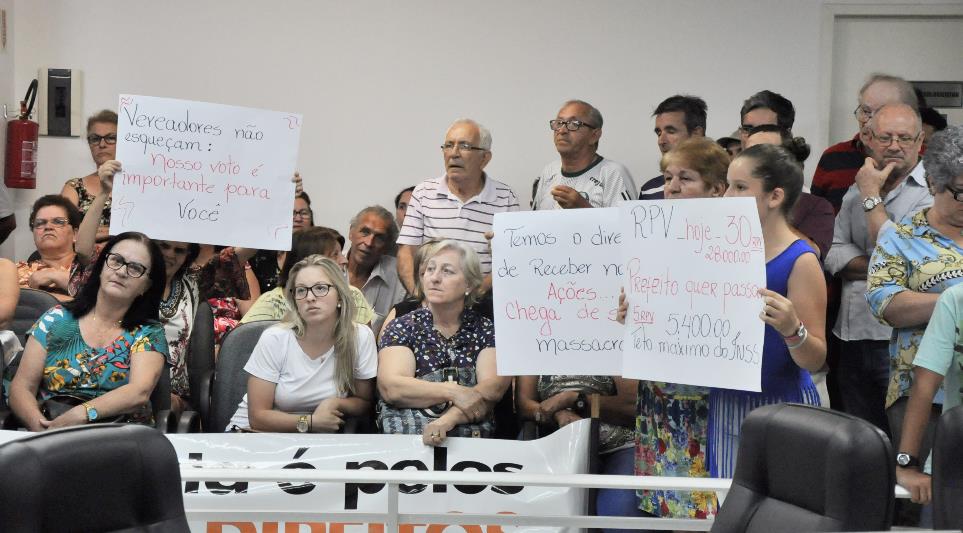 Vereadores não
esqueçam:
Nosso voto é
importante para
Você
Temos o dire
de Receber no
Ações...
Chega de s
massacr
RPV hoje - 30
28000.00
Prefeito quer passar
5 RPV 5.400.00
Teto máximo do INSS
é pelos
DIREITOS